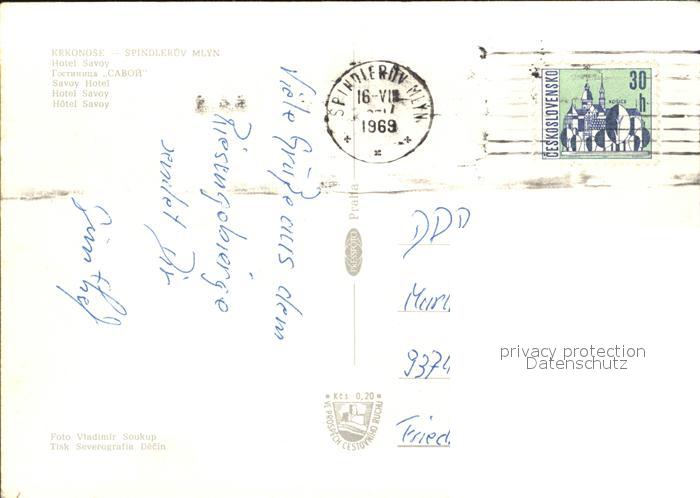 KRKONOŠE — ŠPINDLERŮV MLÝN
Hotel Savoy
Гостиница „САВОЙ"
Savoy Hotel
Hotel Savoy
Hôtel Savoy
ŠPINDLERŮV MLÝN
16-VII
1969
ČESKOSLOVENSKO
30 h
KOŠICE
Viele Grüße aus dem
Riesengebirge
sendet Dir
Günther
PRESSFOTO Praha
DDD
937
Fried
privacy protection
Datenschutz
Kčs 0,20
VE PROSPĚCH CESTOVNÍHO RUCHU
Foto Vladimír Soukup
Tisk Severografia Děčín